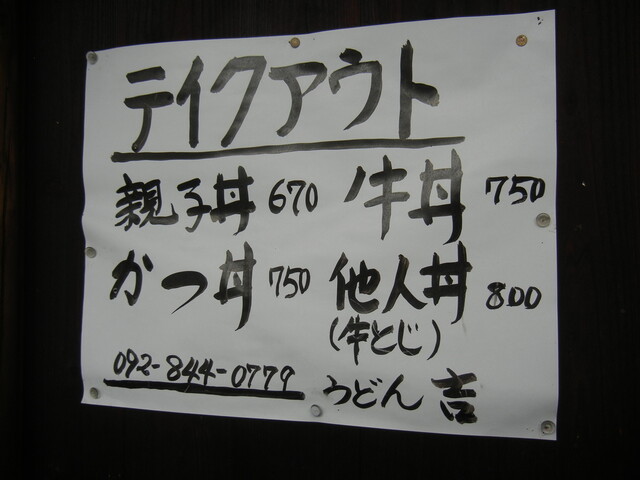 テイクアウト
親子丼 670 牛丼 750
かつ丼 750 他人丼 800
(牛とじ)
092-844-0779 うどん 吉